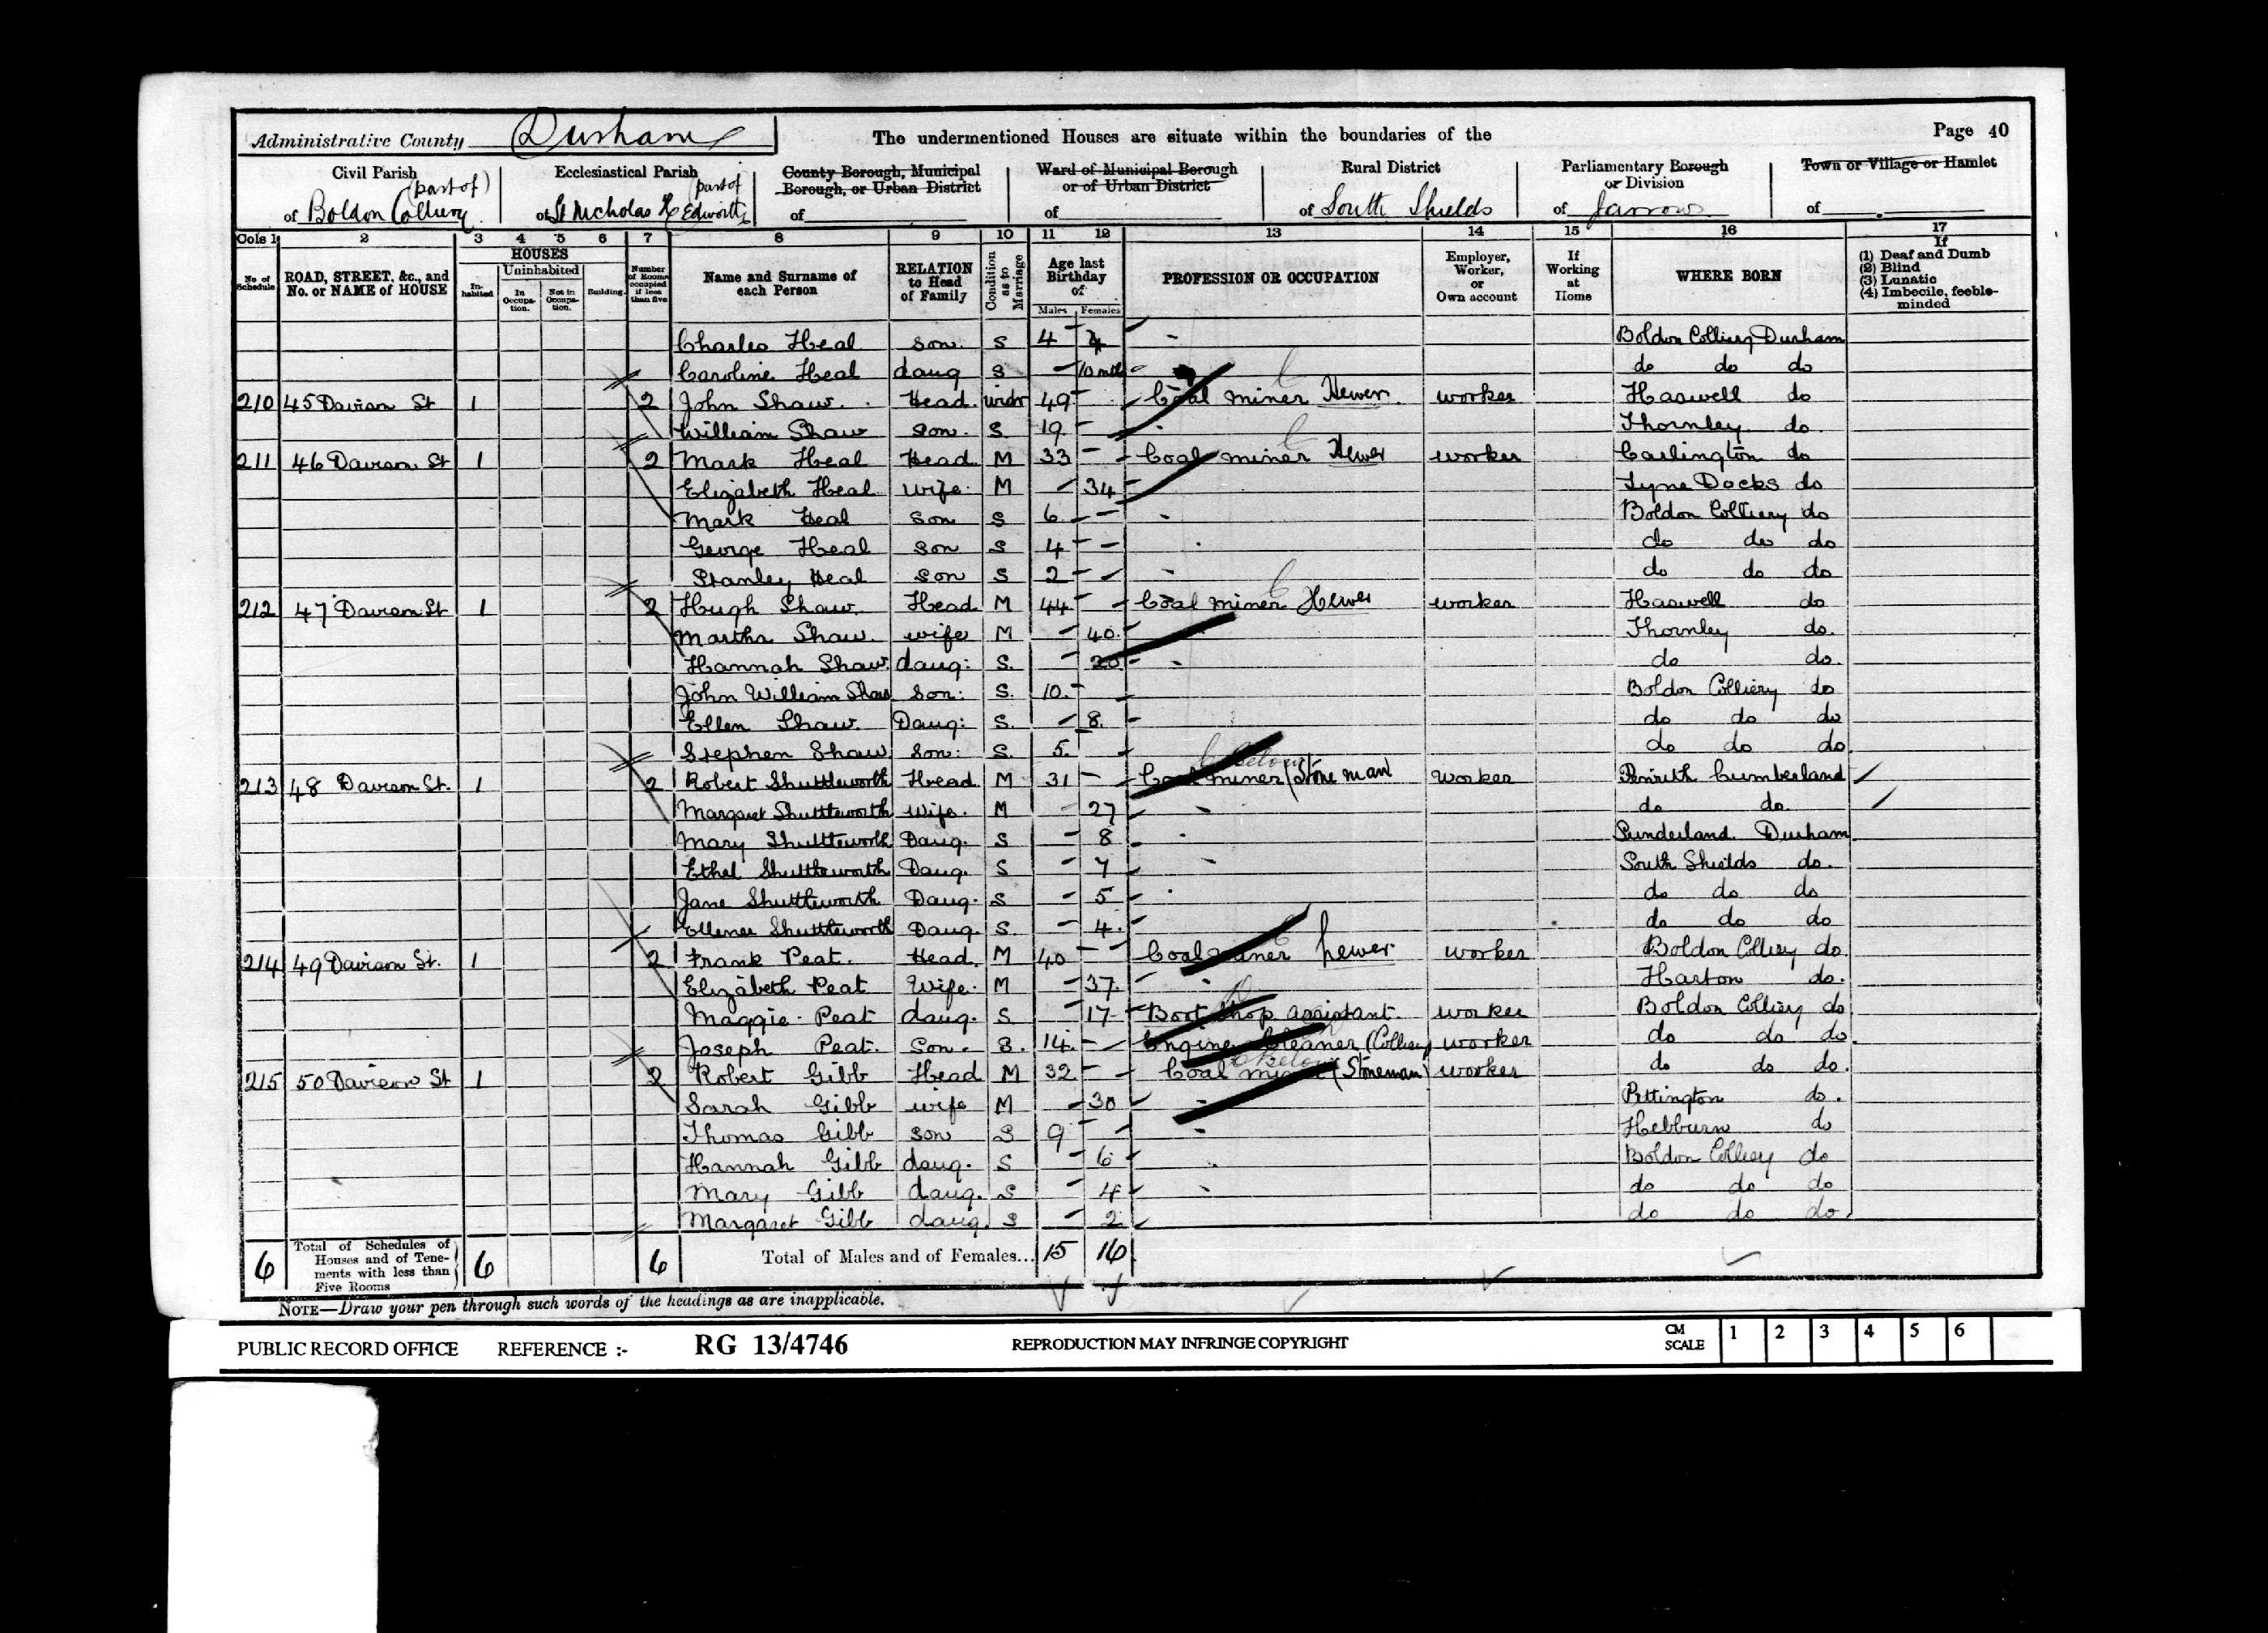 Administrative County Durham The undermentioned Houses are situate within the boundaries of the Page 40
Civil Parish Ecclesiastical Parish County Borough, Municipal Borough, or Urban District Ward of Municipal Borough or of Urban District Rural District Parliamentary Borough or Division Town or Village or Hamlet
(part of) part of
of Boldon Colliery of St Nicholas Hedworth of of of South Shields of Jarrow of
Cols 1 2 3 4 5 6 7 8 9 10 11 12 13 14 15 16 17
No. of Schedule ROAD, STREET, &c., and No. or NAME of HOUSE HOUSES Inhabited Uninhabited In Occupation. Not in Occupation. Building. Number of Rooms occupied if less than five Name and Surname of each Person RELATION to Head of Family Condition as to Marriage Age last Birthday of Males Females PROFESSION OR OCCUPATION Employer, Worker, or Own account If Working at Home WHERE BORN If (1) Deaf and Dumb (2) Blind (3) Lunatic (4) Imbecile, feeble-minded
Charles Heal son S 4 Boldon Colliery Durham
Caroline Heal daug S 10 mths do do do
210 45 Davison St 1 2 John Shaw Head widr 49 Coal miner Hewer worker Haswell do
William Shaw son S 19 Thornley do
211 46 Davison St 1 2 Mark Heal Head M 33 Coal miner Hewer worker Carlington do
Elizabeth Heal wife M 34 Tyne Docks do
Mark Heal son S 6 Boldon Colliery do
George Heal son S 4 do do do
Stanley Heal son S 2 do do do
212 47 Davison St 1 2 Hugh Shaw Head M 44 Coal miner Hewer worker Haswell do
Martha Shaw wife M 40 Thornley do.
Hannah Shaw daug: S. 20 do do.
John William Shaw son: S. 10. Boldon Colliery do
Ellen Shaw. Daug: S. 8. do do do
Stephen Shaw son: S. 5. do do do.
213 48 Davison St. 1 2 Robert Shuttleworth Head M 31 Coal miner (Stone man below worker Penrith Cumberland
Margaret Shuttleworth Wife. M 27 do do.
Mary Shuttleworth Daug. S 8 Sunderland Durham
Ethel Shuttleworth Daug. S 7 South Shields do.
Jane Shuttleworth Daug. S 5 do do do
Shuttleworth Daug. S. 4. do do do
214 49 Davison St. 1 2 Frank Peat. Head M 40 Coal miner hewer worker Boldon Colliery do.
Elizabeth Peat Wife. M 37. Harton do.
Maggie Peat daug. S 17 Boot Shop assistant worker Boldon Colliery do
Joseph Peat. Son. S. 14. Engine Cleaner (Colliery worker do do do.
215 50 Davison St 1 2 Robert Gibb Head M 32 Coal miner (Stoneman) below worker do do do.
Sarah Gibb wife M 30 Pittington do.
Thomas Gibb son S 9 Hebburn do
Hannah Gibb daug. S 6 Boldon Colliery do
Mary Gibb daug. S 4 do do do
Margaret Gibb daug. S 2 do do do.
6 Total of Schedules of Houses and of Tenements with less than Five Rooms 6 6 Total of Males and of Females... 15 16
NOTE—Draw your pen through such words of the headings as are inapplicable.
PUBLIC RECORD OFFICE REFERENCE :- RG 13/4746 REPRODUCTION MAY INFRINGE COPYRIGHT CM SCALE 1 2 3 4 5 6